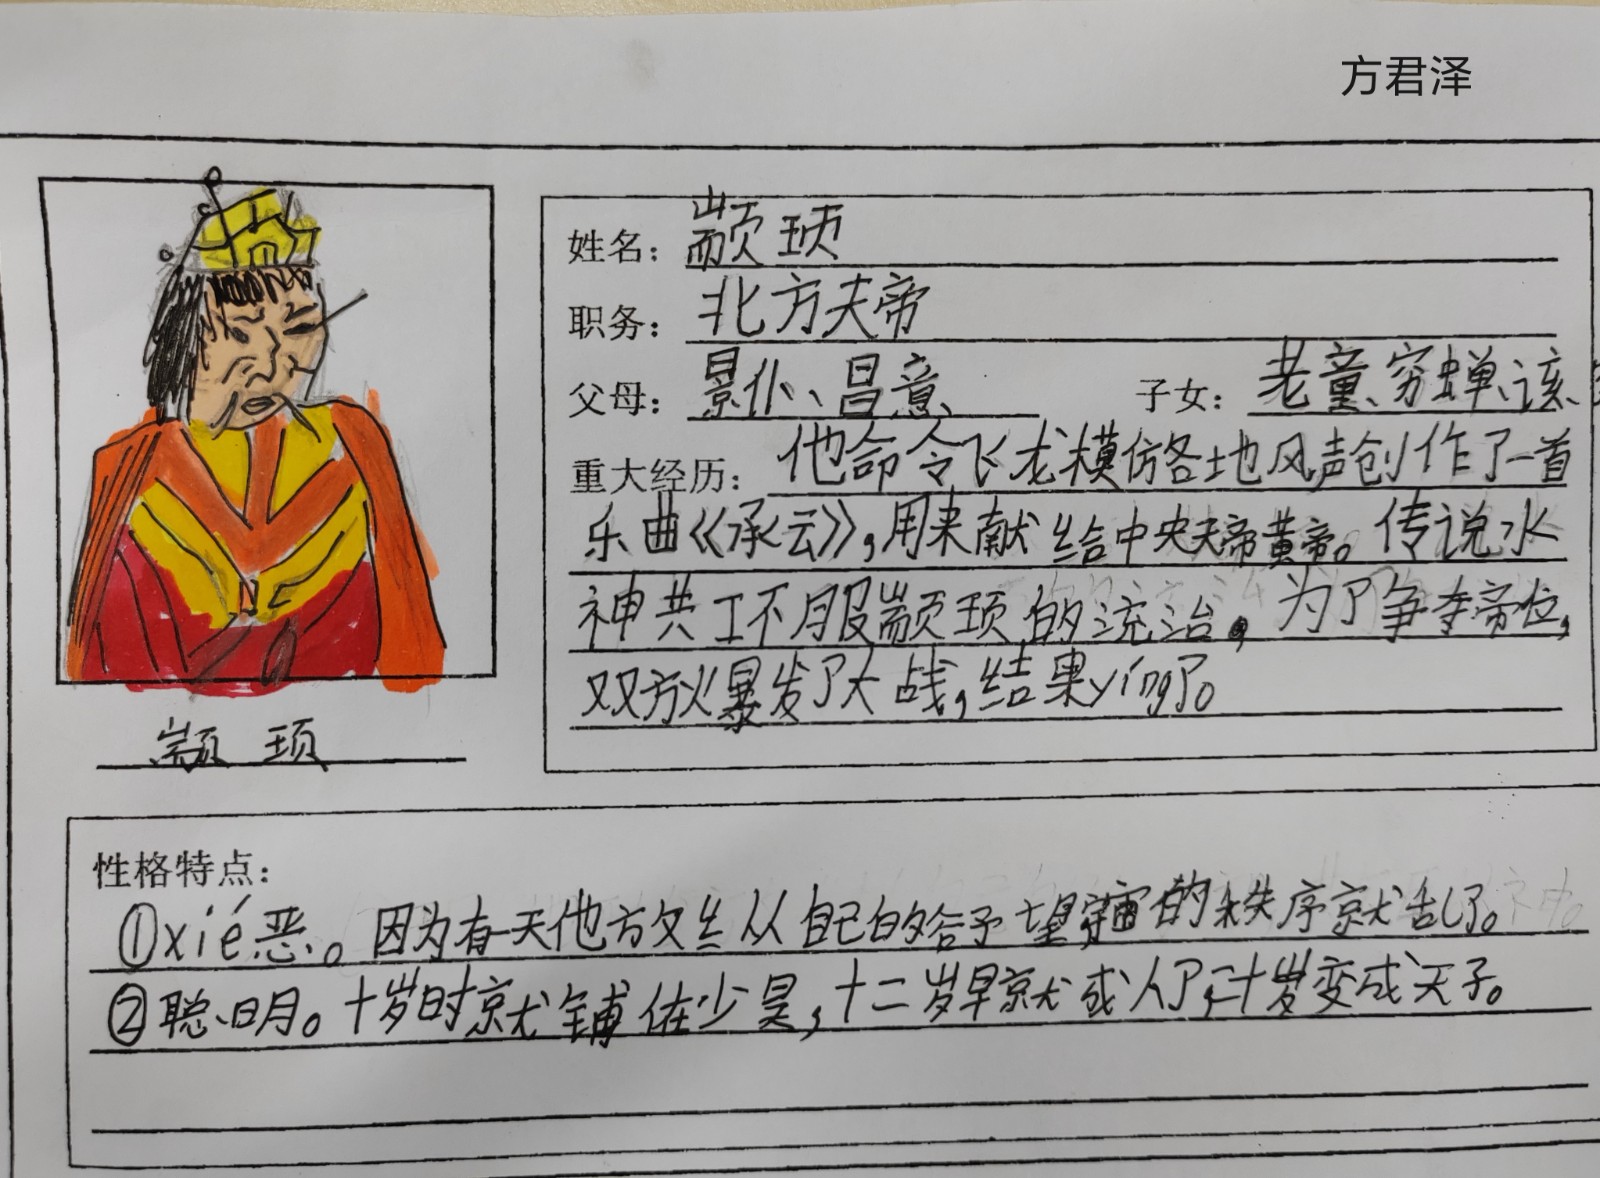 方君泽
姓名：颛顼
职务：北方天帝
父母：景仆、昌意 子女：老童、穷蝉、该
重大经历：他命令飞龙模仿各地风声创作了一首
乐曲《承云》，用来献给中央天帝黄帝。传说水
神共工不服颛顼的统治。为了争夺帝位，
双方火暴发了大战，结果yíng了。
颛顼
性格特点：
①xié恶。因为有一天他方欠丝从自己的给予望宇宙的秩序就乱了。
②聪明。十岁时就铺佐少昊，十二岁早就成人了，二十岁变成天子。